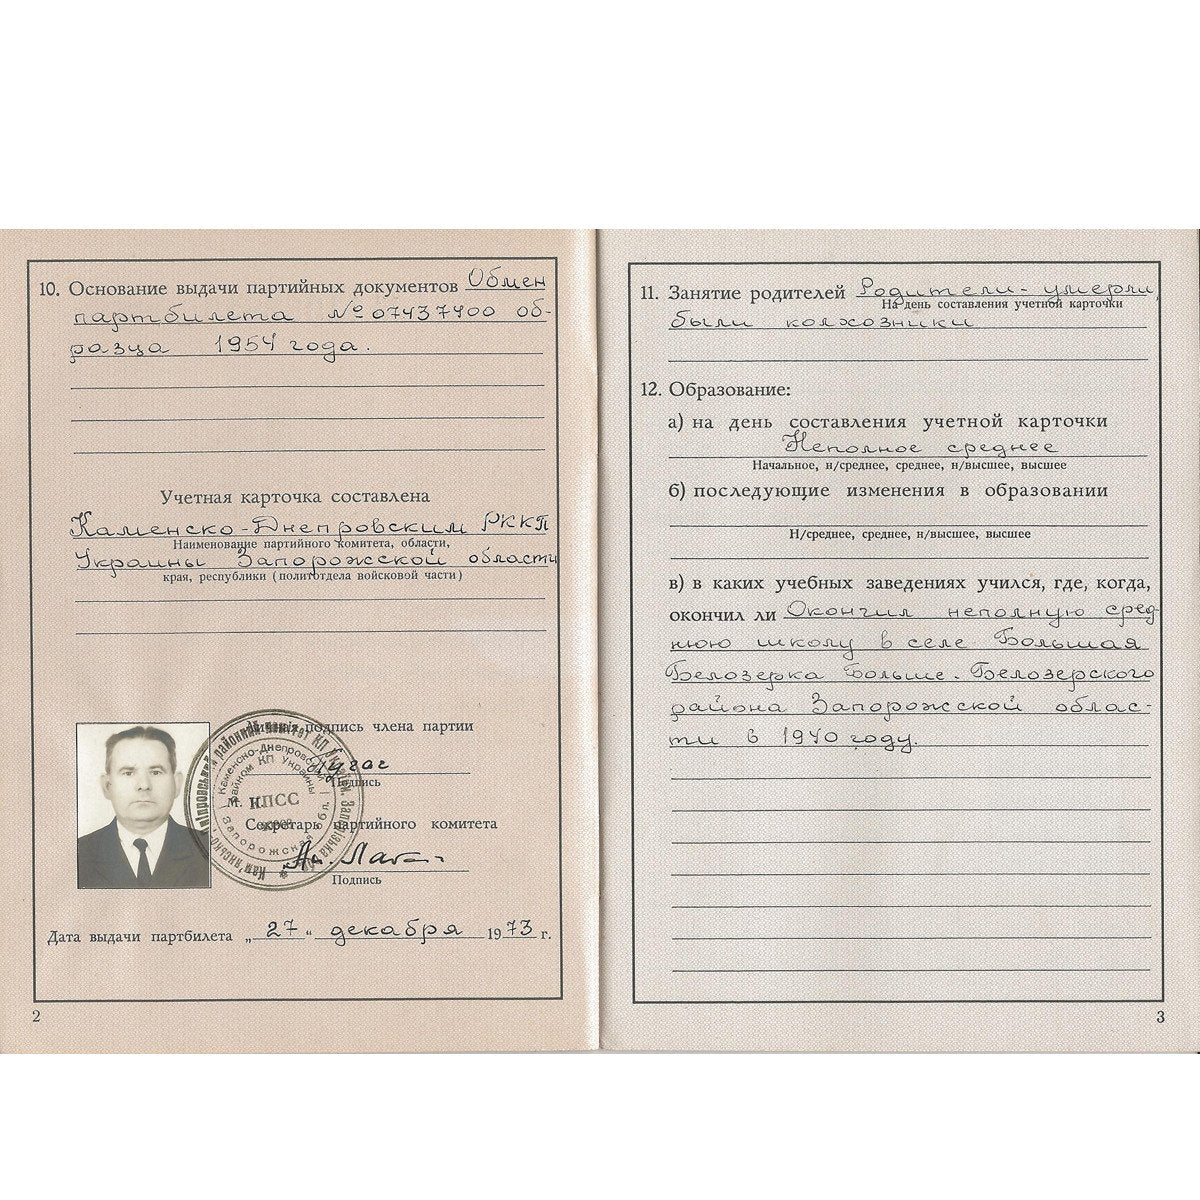 10. Основание выдачи партийных документов Обмен
партбилета № 07437400 об-
разца 1954 года.
Учетная карточка составлена
Каменско-Днепровским РККП
Наименование партийного комитета, области,
Украины Запорожской области
края, республики (политотдела войсковой части)
Личная подпись члена партии
Подпись
М. П.
КПСС
Каменско-Днепровский
райком КП Украины
Запорожская обл.
Секретарь партийного комитета
Подпись
Дата выдачи партбилета „27“ декабря 1973 г.
2
11. Занятие родителей Родители - умерли,
На день составления учетной карточки
были колхозники
12. Образование:
а) на день составления учетной карточки
Неполное среднее
Начальное, н/среднее, среднее, н/высшее, высшее
б) последующие изменения в образовании
Н/среднее, среднее, н/высшее, высшее
в) в каких учебных заведениях учился, где, когда,
окончил ли Окончил неполную сред
нюю школу в селе Большая
Белозерка Больше-Белозерского
района Запорожской облас-
ти в 1940 году.
3